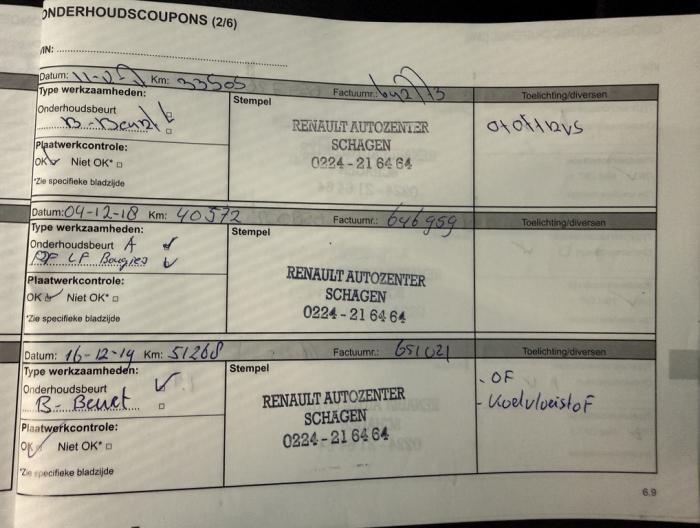 ONDERHOUDSCOUPONS (2/6)
VIN:
Datum: Km: 33505 Factuurnr.: Toelichting/diversen
Type werkzaamheden: Stempel
Onderhoudsbeurt
B-Beurt
Plaatwerkcontrole:
OK Niet OK*
*Zie specifieke bladzijde
RENAULT AUTOZENTER
SCHAGEN
0224-21 64 64
Datum: 04-12-18 Km: 40572 Factuurnr.: 646959 Toelichting/diversen
Type werkzaamheden: Stempel
Onderhoudsbeurt A
LF Bougies
Plaatwerkcontrole:
OK Niet OK*
*Zie specifieke bladzijde
RENAULT AUTOZENTER
SCHAGEN
0224-21 64 64
Datum: 16-12-19 Km: 51268 Factuurnr.: 651021 Toelichting/diversen
Type werkzaamheden: Stempel
Onderhoudsbeurt
B-Beurt
Plaatwerkcontrole:
OK Niet OK*
*Zie specifieke bladzijde
RENAULT AUTOZENTER
SCHAGEN
0224-21 64 64
- OF
- Koelvloeistof
6.9